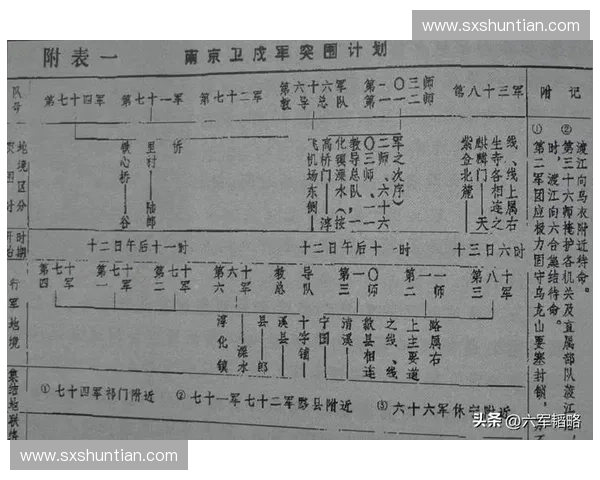 www.sxshuntian.com
附表一 南京卫戍军突围计划
第七十四军
第七十一军
第七十二军
第六十六军
教导总队
第一〇三师
第一一二师
第八十三军
附记
铁心桥——谷
里村——陆郎
桥
飞机场东侧——
高桥门——淳
化镇溧水(按
教导总队,一
〇三师、一一
二师、六十六
军之次序)
紫金北麓——
麒麟门——天
生寺各相连之
线、线上属右
①第二军团应极力固守乌龙山要塞封锁
②第三十六师掩护各机关及直属部队渡江
时,渡江向六合集结待命。
渡江向乌衣附近待命。
十二日午后十一时
十二日午后十一时
十三日六时
第七十四军
第七十一军
第七十二军
第六十六军
教导总队
第一〇三师
第一一二师
第八十三军
行军地境
淳化镇
——溧水
——郎
县——
溪县——
十字铺——
宁国——
清溪——
歙县相连
之线、线
上主要道
路属右
集结地
①七十四军祁门附近 ②七十一军七十二军黟县附近 ③六十六军休宁附近
头条 @六军韬略
www.sxshuntian.com